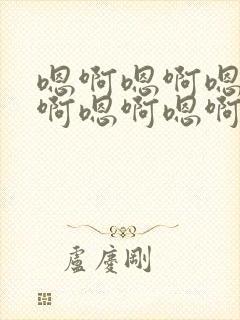 嗯啊嗯啊嗯
啊嗯啊嗯啊
盧慶剛